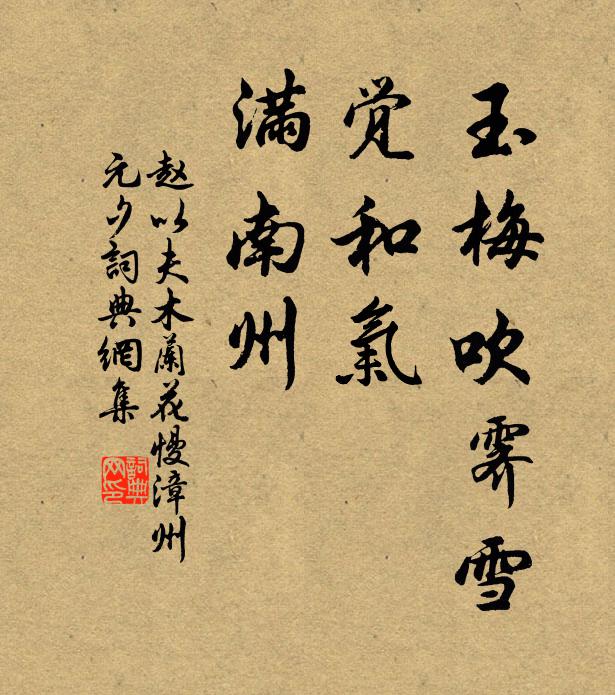 玉梅吹霽雪
觉和氣
滿南州
赵以夫木蘭花慢漳州
元夕詞典網集
詞典
网印